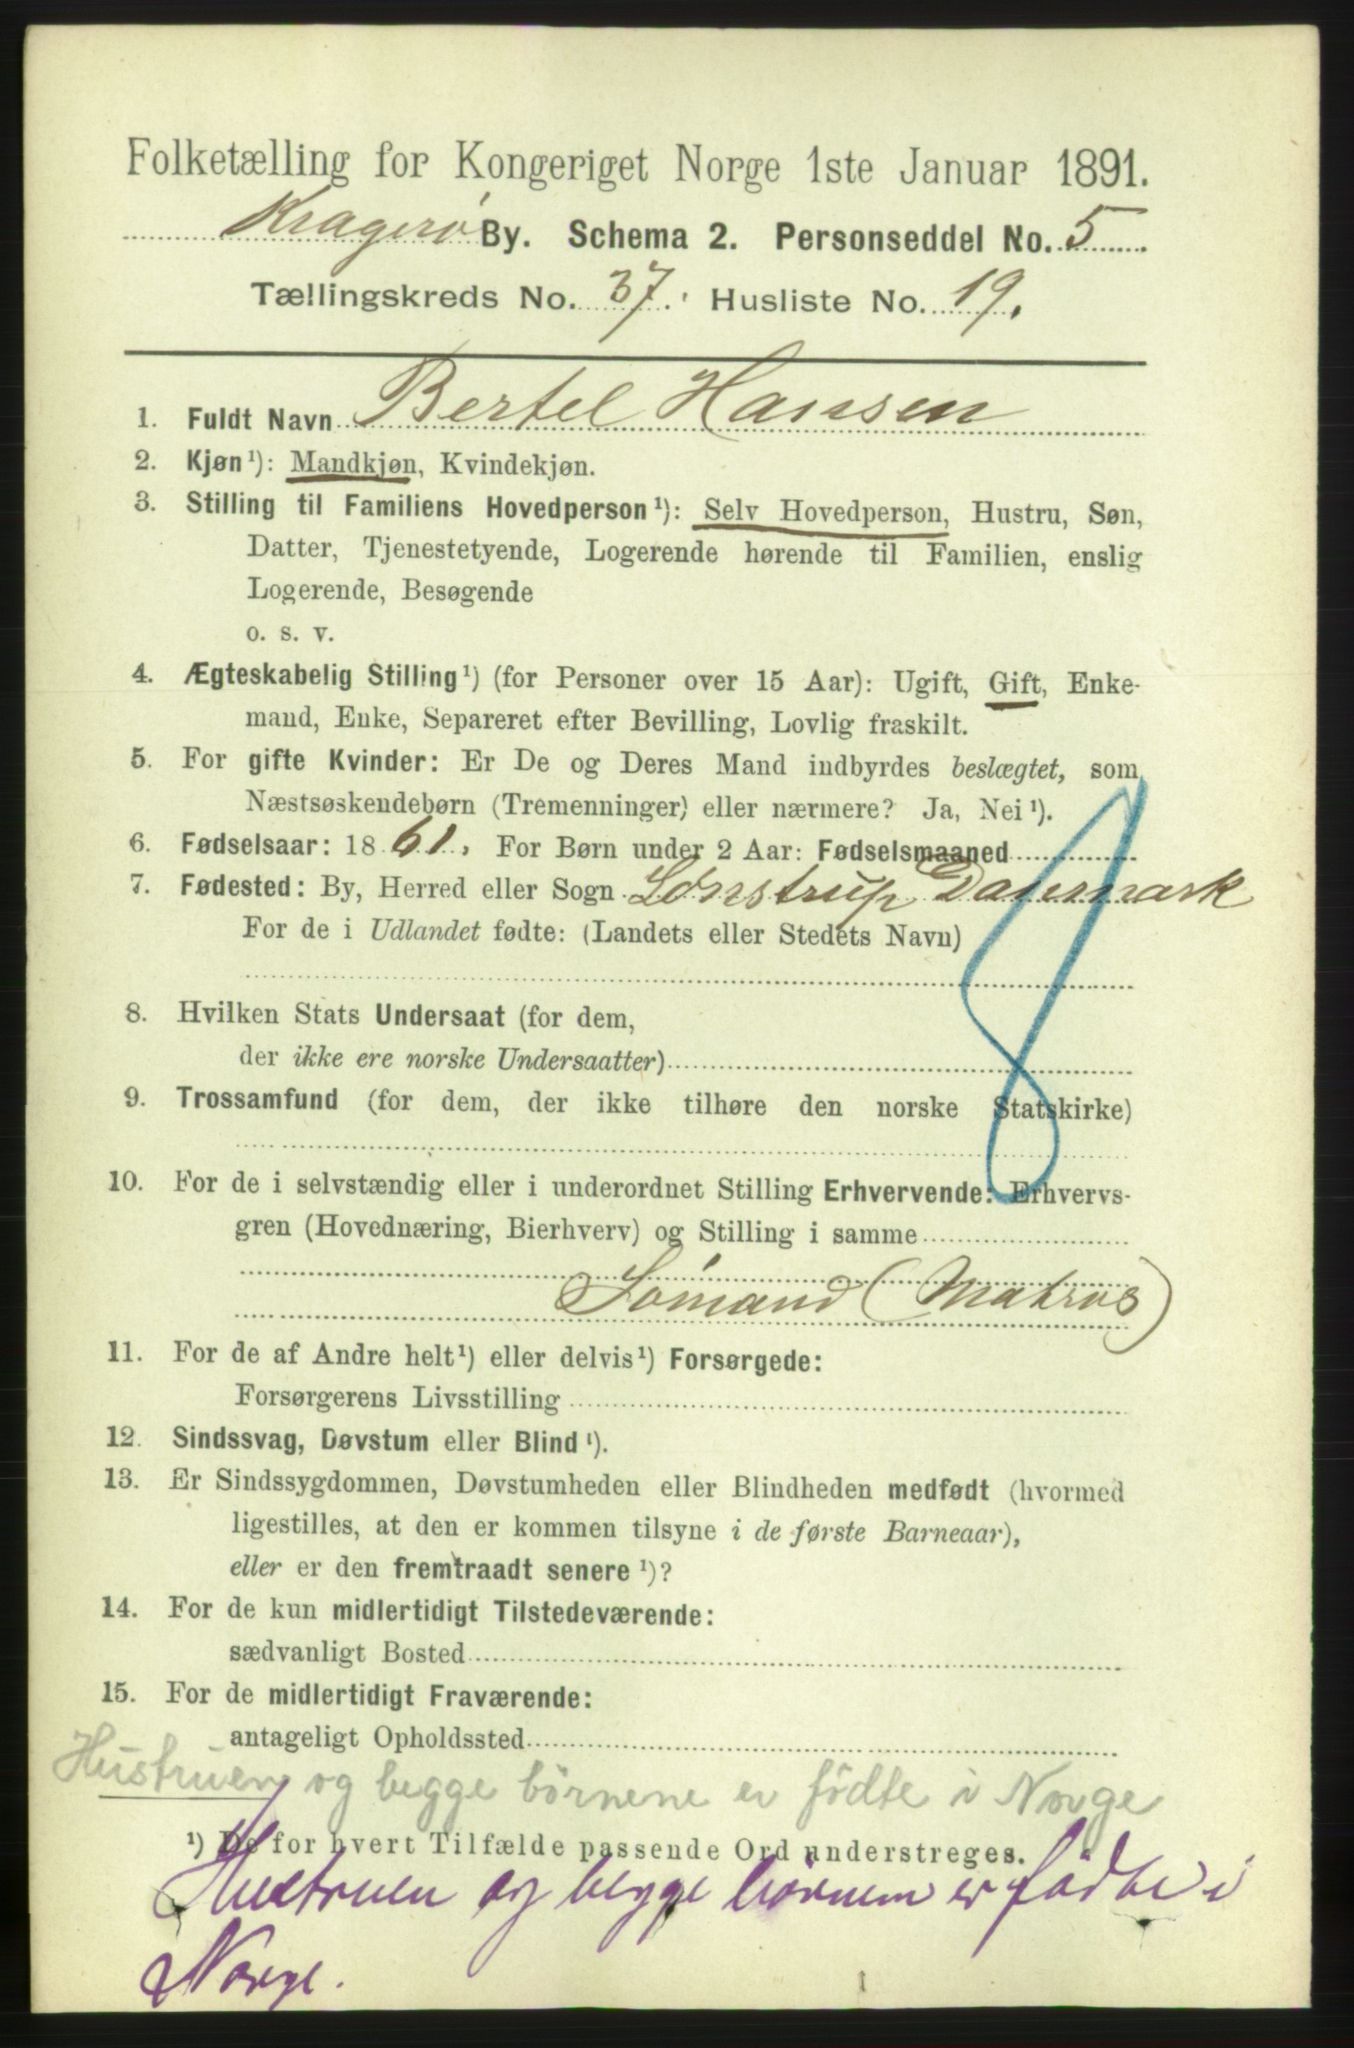 Folketælling for Kongeriget Norge 1ste Januar 1891.
Kragerø By. Schema 2. Personseddel No. 5
Tællingskreds No. 37. Husliste No. 19.
1. Fuldt Navn Bertel Hansen
2. Kjøn¹): Mandkjøn, Kvindekjøn.
3. Stilling til Familiens Hovedperson¹): Selv Hovedperson, Hustru, Søn,
Datter, Tjenestetyende, Logerende hørende til Familien, enslig
Logerende, Besøgende
o. s. v.
4. Ægteskabelig Stilling¹) (for Personer over 15 Aar): Ugift, Gift, Enke-
mand, Enke, Separeret efter Bevilling, Lovlig fraskilt.
5. For gifte Kvinder: Er De og Deres Mand indbyrdes beslægtet, som
Næstsøskendebørn (Tremenninger) eller nærmere? Ja, Nei¹).
6. Fødselsaar: 1861. For Børn under 2 Aar: Fødselsmaaned
7. Fødested: By, Herred eller Sogn Lønstrup Danmark
For de i Udlandet fødte: (Landets eller Stedets Navn)
8. Hvilken Stats Undersaat (for dem,
der ikke ere norske Undersaatter)
9. Trossamfund (for dem, der ikke tilhøre den norske Statskirke)
10. For de i selvstændig eller i underordnet Stilling Erhvervende: Erhvervs-
gren (Hovednæring, Bierhverv) og Stilling i samme
Sømand (Matros)
11. For de af Andre helt¹) eller delvis¹) Forsørgede:
Forsørgerens Livsstilling
12. Sindssvag, Døvstum eller Blind¹).
13. Er Sindssygdommen, Døvstumheden eller Blindheden medfødt (hvormed
ligestilles, at den er kommen tilsyne i de første Barneaar),
eller er den fremtraadt senere¹)?
14. For de kun midlertidigt Tilstedeværende:
sædvanligt Bosted
15. For de midlertidigt Fraværende:
antageligt Opholdssted
Hustruen og begge børnene er fødte i Norge
¹) De for hvert Tilfælde passende Ord understreges.
Hustruen og begge børnene er fødte i
Norge.